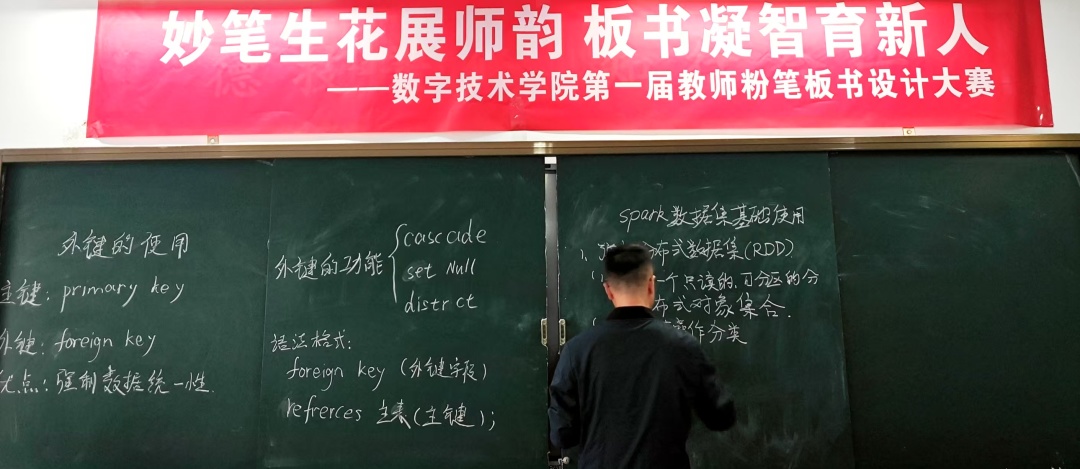 妙笔生花展师韵 板书凝智育新人
——数字技术学院第一届教师粉笔板书设计大赛
外键的使用
主键: primary key
外键: foreign key
优点: 强制数据统一性.
外键的功能
cascade
set Null
distrct
语法格式:
foreign key (外键字段)
refrerces 主表(主键);
spark数据集基础使用
1、分布式数据集(RDD)
一个只读的,可分区的分
布式对象集合.
操作分类